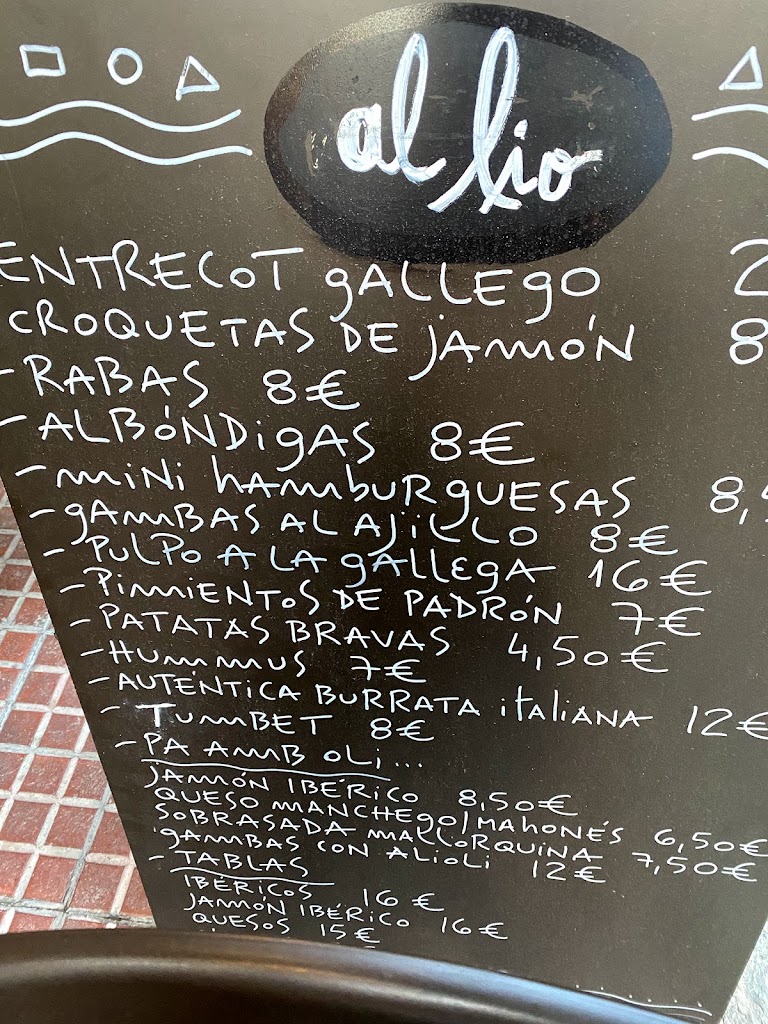 al lio
ENTRECOT GALLEGO 2
CROQUETAS DE JAMÓN 8
- RABAS 8€
- ALBÓNDIGAS 8€
- MINI HAMBURGUESAS 8,5
- GAMBAS AL AJILLO 8€
- PULPO A LA GALLEGA 16€
- PIMIENTOS DE PADRÓN 7€
- PATATAS BRAVAS 4,50€
- HUMMUS 7€
- AUTENTICA BURRATA italiana 12€
- TUMBET 8€
- PA AMB OLI...
JAMÓN IBÉRICO 8,50€
QUESO MANCHEGO/MAHONÉS 6,50€
SOBRASADA MALLORQUINA 7,50€
GAMBAS CON ALIOLI 12€
- TABLAS
IBÉRICOS 16€
JAMÓN IBÉRICO 16€
QUESOS 15€